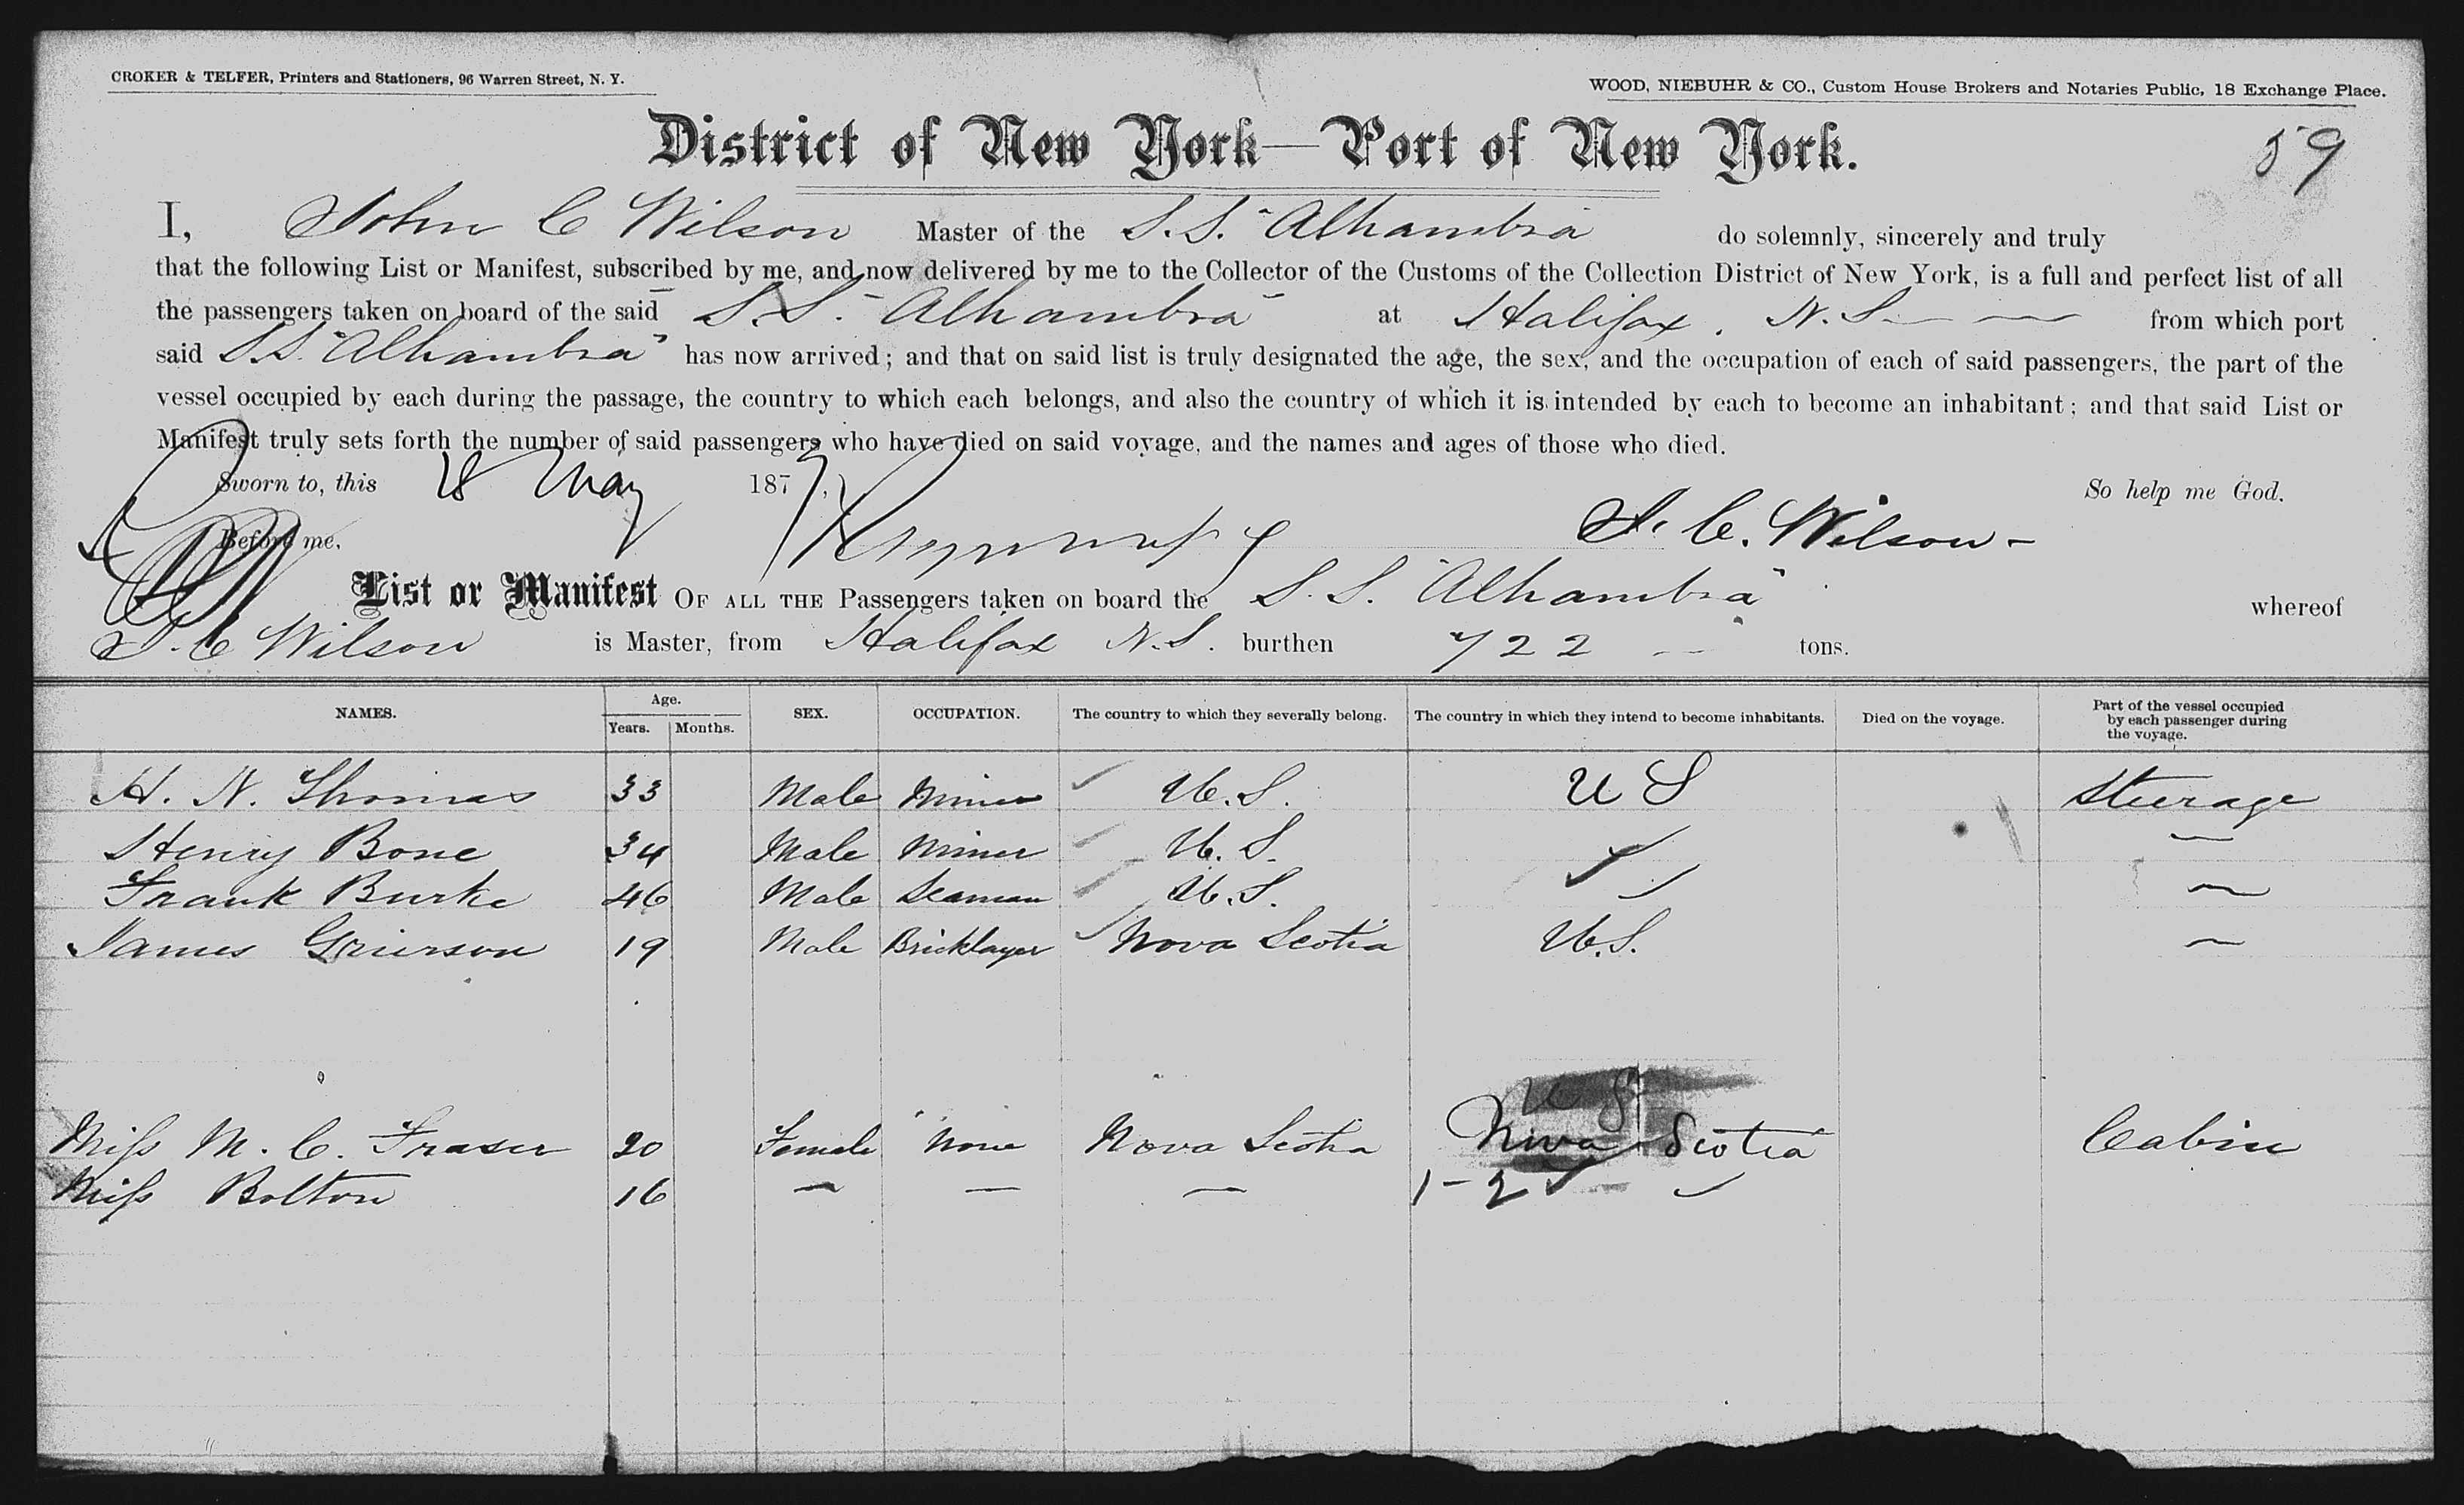 CROKER & TELFER, Printers and Stationers, 96 Warren Street, N. Y.
WOOD, NIEBUHR & CO., Custom House Brokers and Notaries Public, 18 Exchange Place.
District of New York—Port of New York.
59
I, John C Wilson Master of the S.S. "Alhambra do solemnly, sincerely and truly
that the following List or Manifest, subscribed by me, and now delivered by me to the Collector of the Customs of the Collection District of New York, is a full and perfect list of all
the passengers taken on board of the said S.S. "Alhambra" at Halifax. N.S. from which port
said S.S. "Alhambra" has now arrived; and that on said list is truly designated the age, the sex, and the occupation of each of said passengers, the part of the
vessel occupied by each during the passage, the country to which each belongs, and also the country of which it is intended by each to become an inhabitant; and that said List or
Manifest truly sets forth the number of said passengers who have died on said voyage, and the names and ages of those who died.
Sworn to, this 18 May 187 So help me God.
Before me. J. C. Wilson –
List or Manifest OF ALL THE Passengers taken on board the S. S. "Alhambra" whereof
J. C Wilson is Master, from Halifax N.S. burthen 722 tons.
NAMES. Age. Years. Months. SEX. OCCUPATION. The country to which they severally belong. The country in which they intend to become inhabitants. Died on the voyage. Part of the vessel occupied by each passenger during the voyage.
H. N. Thomas 33 Male Miner U.S. U S Steerage
Henry Bone 34 Male Miner U.S. —
Frank Burke 46 Male Seaman U.S. —
James Grierson 19 Male Bricklayer Nova Scotia U.S. —
U S
Miss M. C. Fraser 20 Female None Nova Scotia Nova Scotia Cabin
Miss Bolton 16 — — — 1-2